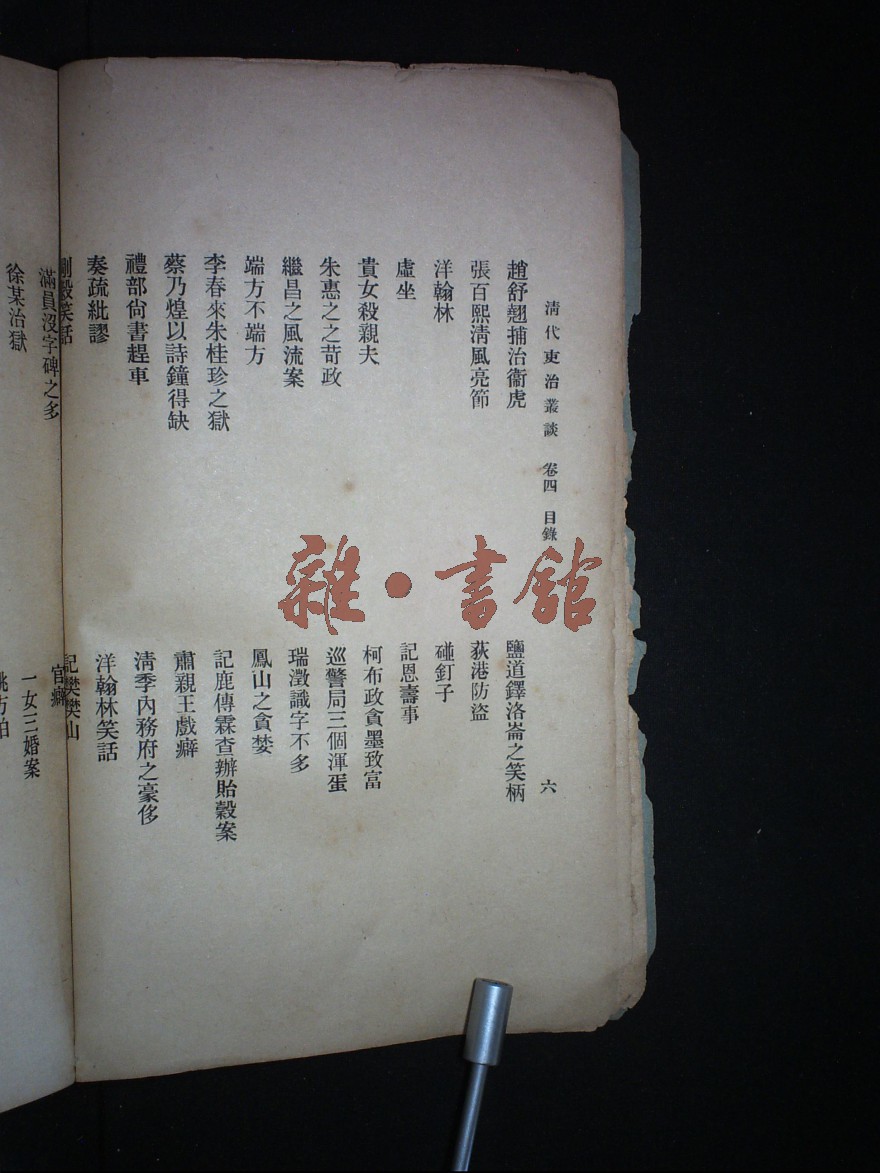 清代吏治叢談 卷四 目錄 六
趙舒翹捕治衞虎
張百熙淸風亮節
洋翰林
虛坐
貴女殺親夫
朱惠之之苛政
繼昌之風流案
端方不端方
李春來朱桂珍之獄
蔡乃煌以詩鐘得缺
禮部尙書趕車
奏疏紕謬
剛毅笑話
鹽道鐸洛崙之笑柄
荻港防盜
碰釘子
記恩壽事
柯布政貪墨致富
巡警局三個渾蛋
瑞澂識字不多
鳳山之貪婪
記鹿傳霖查辦貽穀案
肅親王戲癖
淸季內務府之豪侈
洋翰林笑話
記樊樊山
滿員沒字碑之多
徐某治獄
官癖
一女三婚案
雜·書館